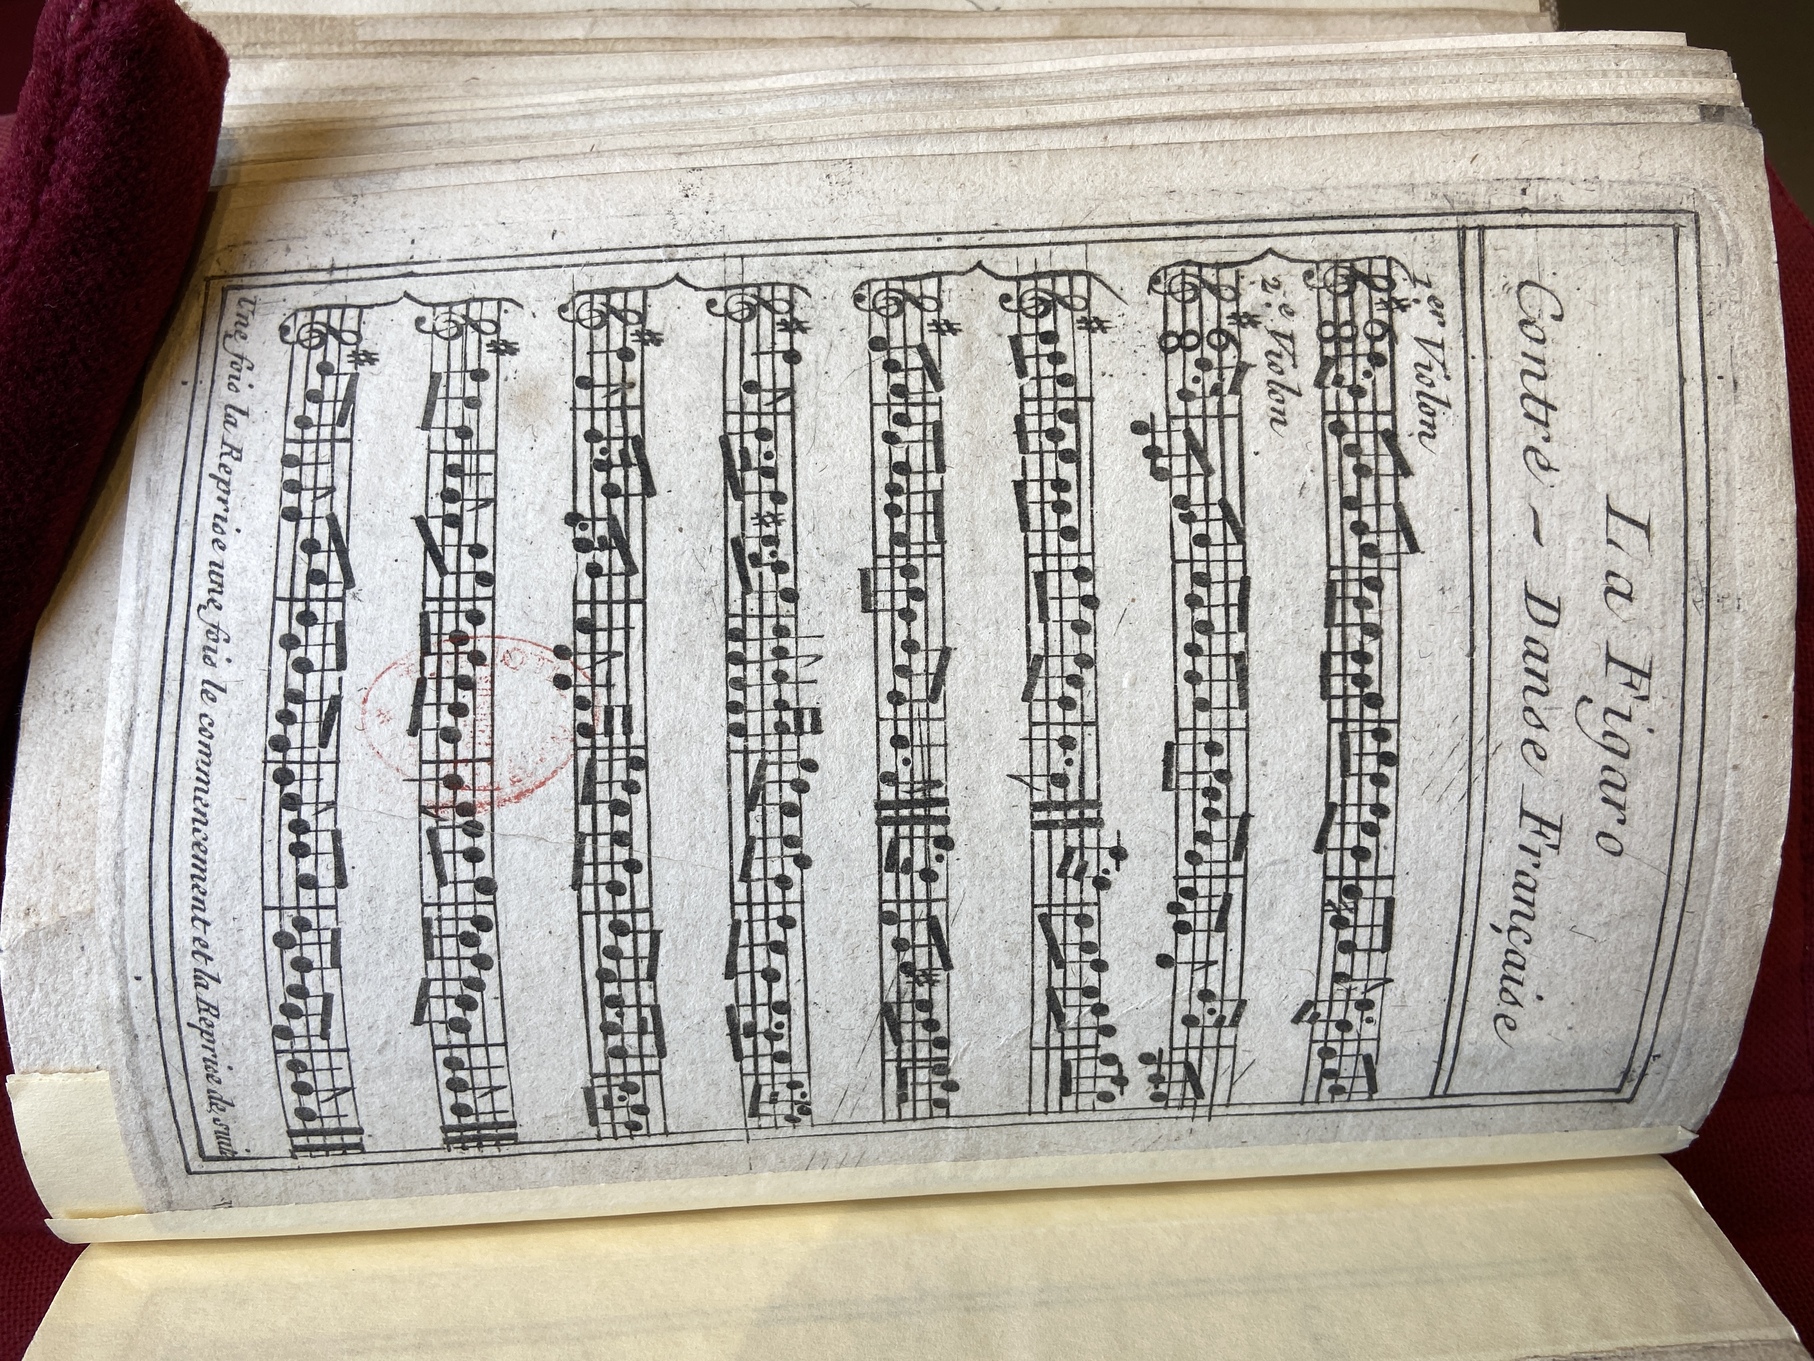 La Figaro
Contre - Danse Française
1er Violon
2e Violon
Une fois la Reprise une fois le commencement et la Reprise de suite